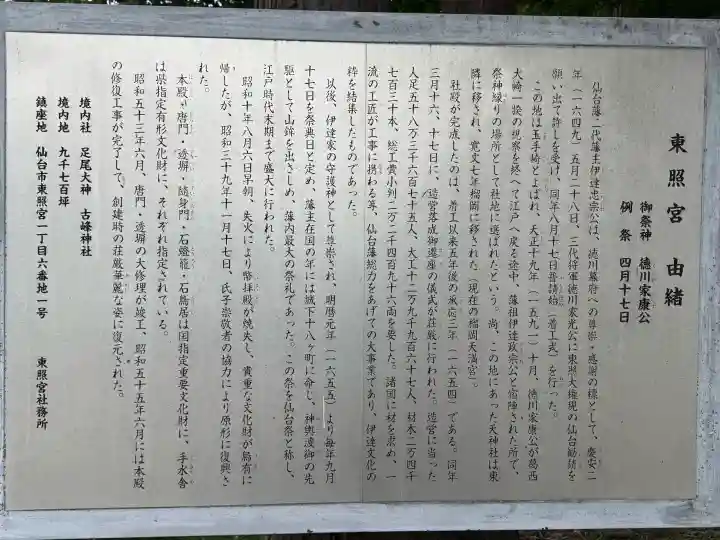 東照宮 由緒
御祭神 徳川家康公
例祭 四月十七日
仙台藩二代藩主伊達忠宗公は、徳川幕府への尊崇・感謝の標として、慶安二
年(一六四九)五月二十八日、三代将軍徳川家光公に東照大権現の仙台勧請を
願い出て許しを受け、同年八月十七日普請始(着工式)を行った。
この地は玉手崎とよばれ、天正十九年(一五九一)十月、徳川家康公が葛西
大崎一揆の視察を終へて江戸へ戻る途中、藩祖伊達政宗公と宿陣された所で、
祭神縁りの場所として社地に選ばれたという。尚、この地にあった天神社は東
隣に移され、寛文七年榴岡に移された(現在の榴岡天満宮)。
社殿が完成したのは、着工以来五年後の承応三年(一六五四)である。同年
三月十六、十七日に、造営落成御遷座の儀式が荘厳に行われた。造営に当った
人足五十八万三千六百七十五人、大工十二万九千九百六十七人、材木二万四千
七百三十本、総工費小判二万二千四百九十六両を要した。諸国に材を求め、一
流の工匠が工事に携わる等、仙台藩総力をあげての大事業であり、伊達文化の
粋を結集したものであった。
以後、伊達家の守護神として尊崇され、明暦元年(一六五五)より毎年九月
十七日を祭典日と定め、藩主在国の年には城下十八ヶ町に命し、神輿渡御の先
駆として山鉾を出さしめ、藩内最大の祭礼であった。この祭を仙台祭と称し、
江戸時代末期まで盛大に行われた。
昭和十年八月六日早朝、失火により幣拝殿が焼失し、貴重な文化財が烏有に
帰したが、昭和三十九年十一月十七日、氏子崇敬者の協力により原形に復興さ
れた。
本殿・唐門・透塀・随身門・石燈籠・石鳥居は国指定重要文化財に、手水舎
は県指定有形文化財に、それぞれ指定されている。
昭和五十三年六月、唐門・透塀の大修理が竣工、昭和五十五年六月には本殿
の修復工事が完了して、創建時の荘厳華麗な姿に復元された。
境内社 足尾大神 古峰神社
境内地 九千七百坪
鎮座地 仙台市東照宮一丁目六番地一号 東照宮社務所